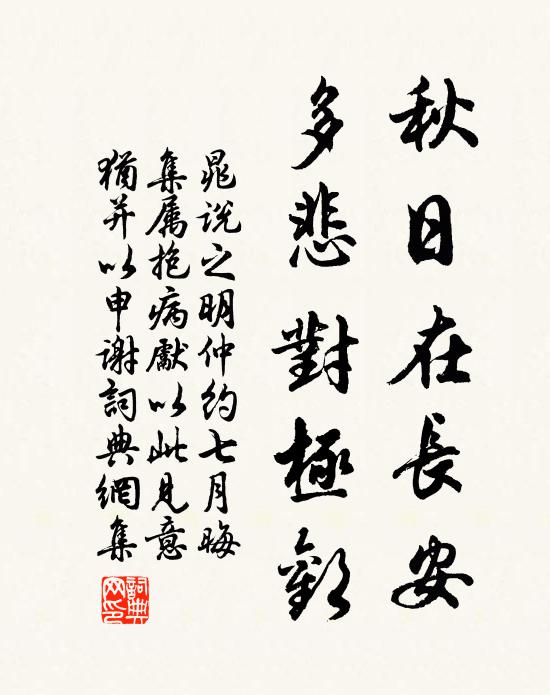 秋日在長安
多悲對極歡
晁説之明仲約七月晦
集属抱病獻以此見意
猶并以申謝詞典網集
詞典
网印